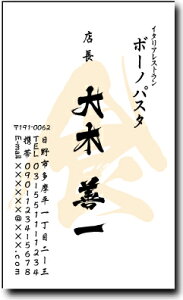 イタリアレストラン
ボーノパスタ
店長
大木善一
〒191-0062
日野市多摩平一丁目二ー三
TEL 0315511112345
携帯 09012345678
E-mail xxxxxx@xxx.com